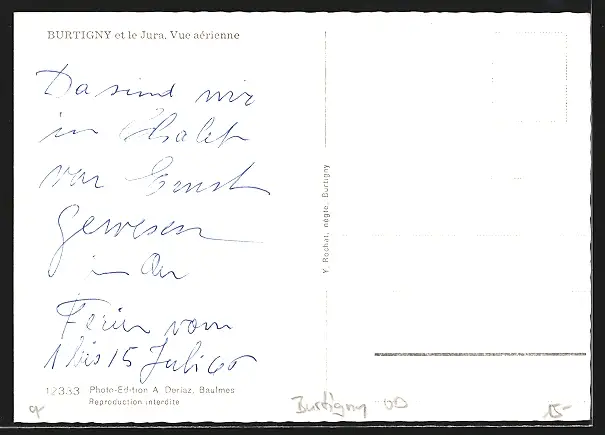 BURTIGNY et le Jura. Vue aérienne
Da sind wir
im Chalet
von Ernst
gewesen
in den
Ferien vom
1 bis 15 Juli 66
Y. Rochat, négte. Burtigny
12333 Photo-Edition A. Deriaz, Baulmes
Reproduction interdite
Burtigny VD
15-